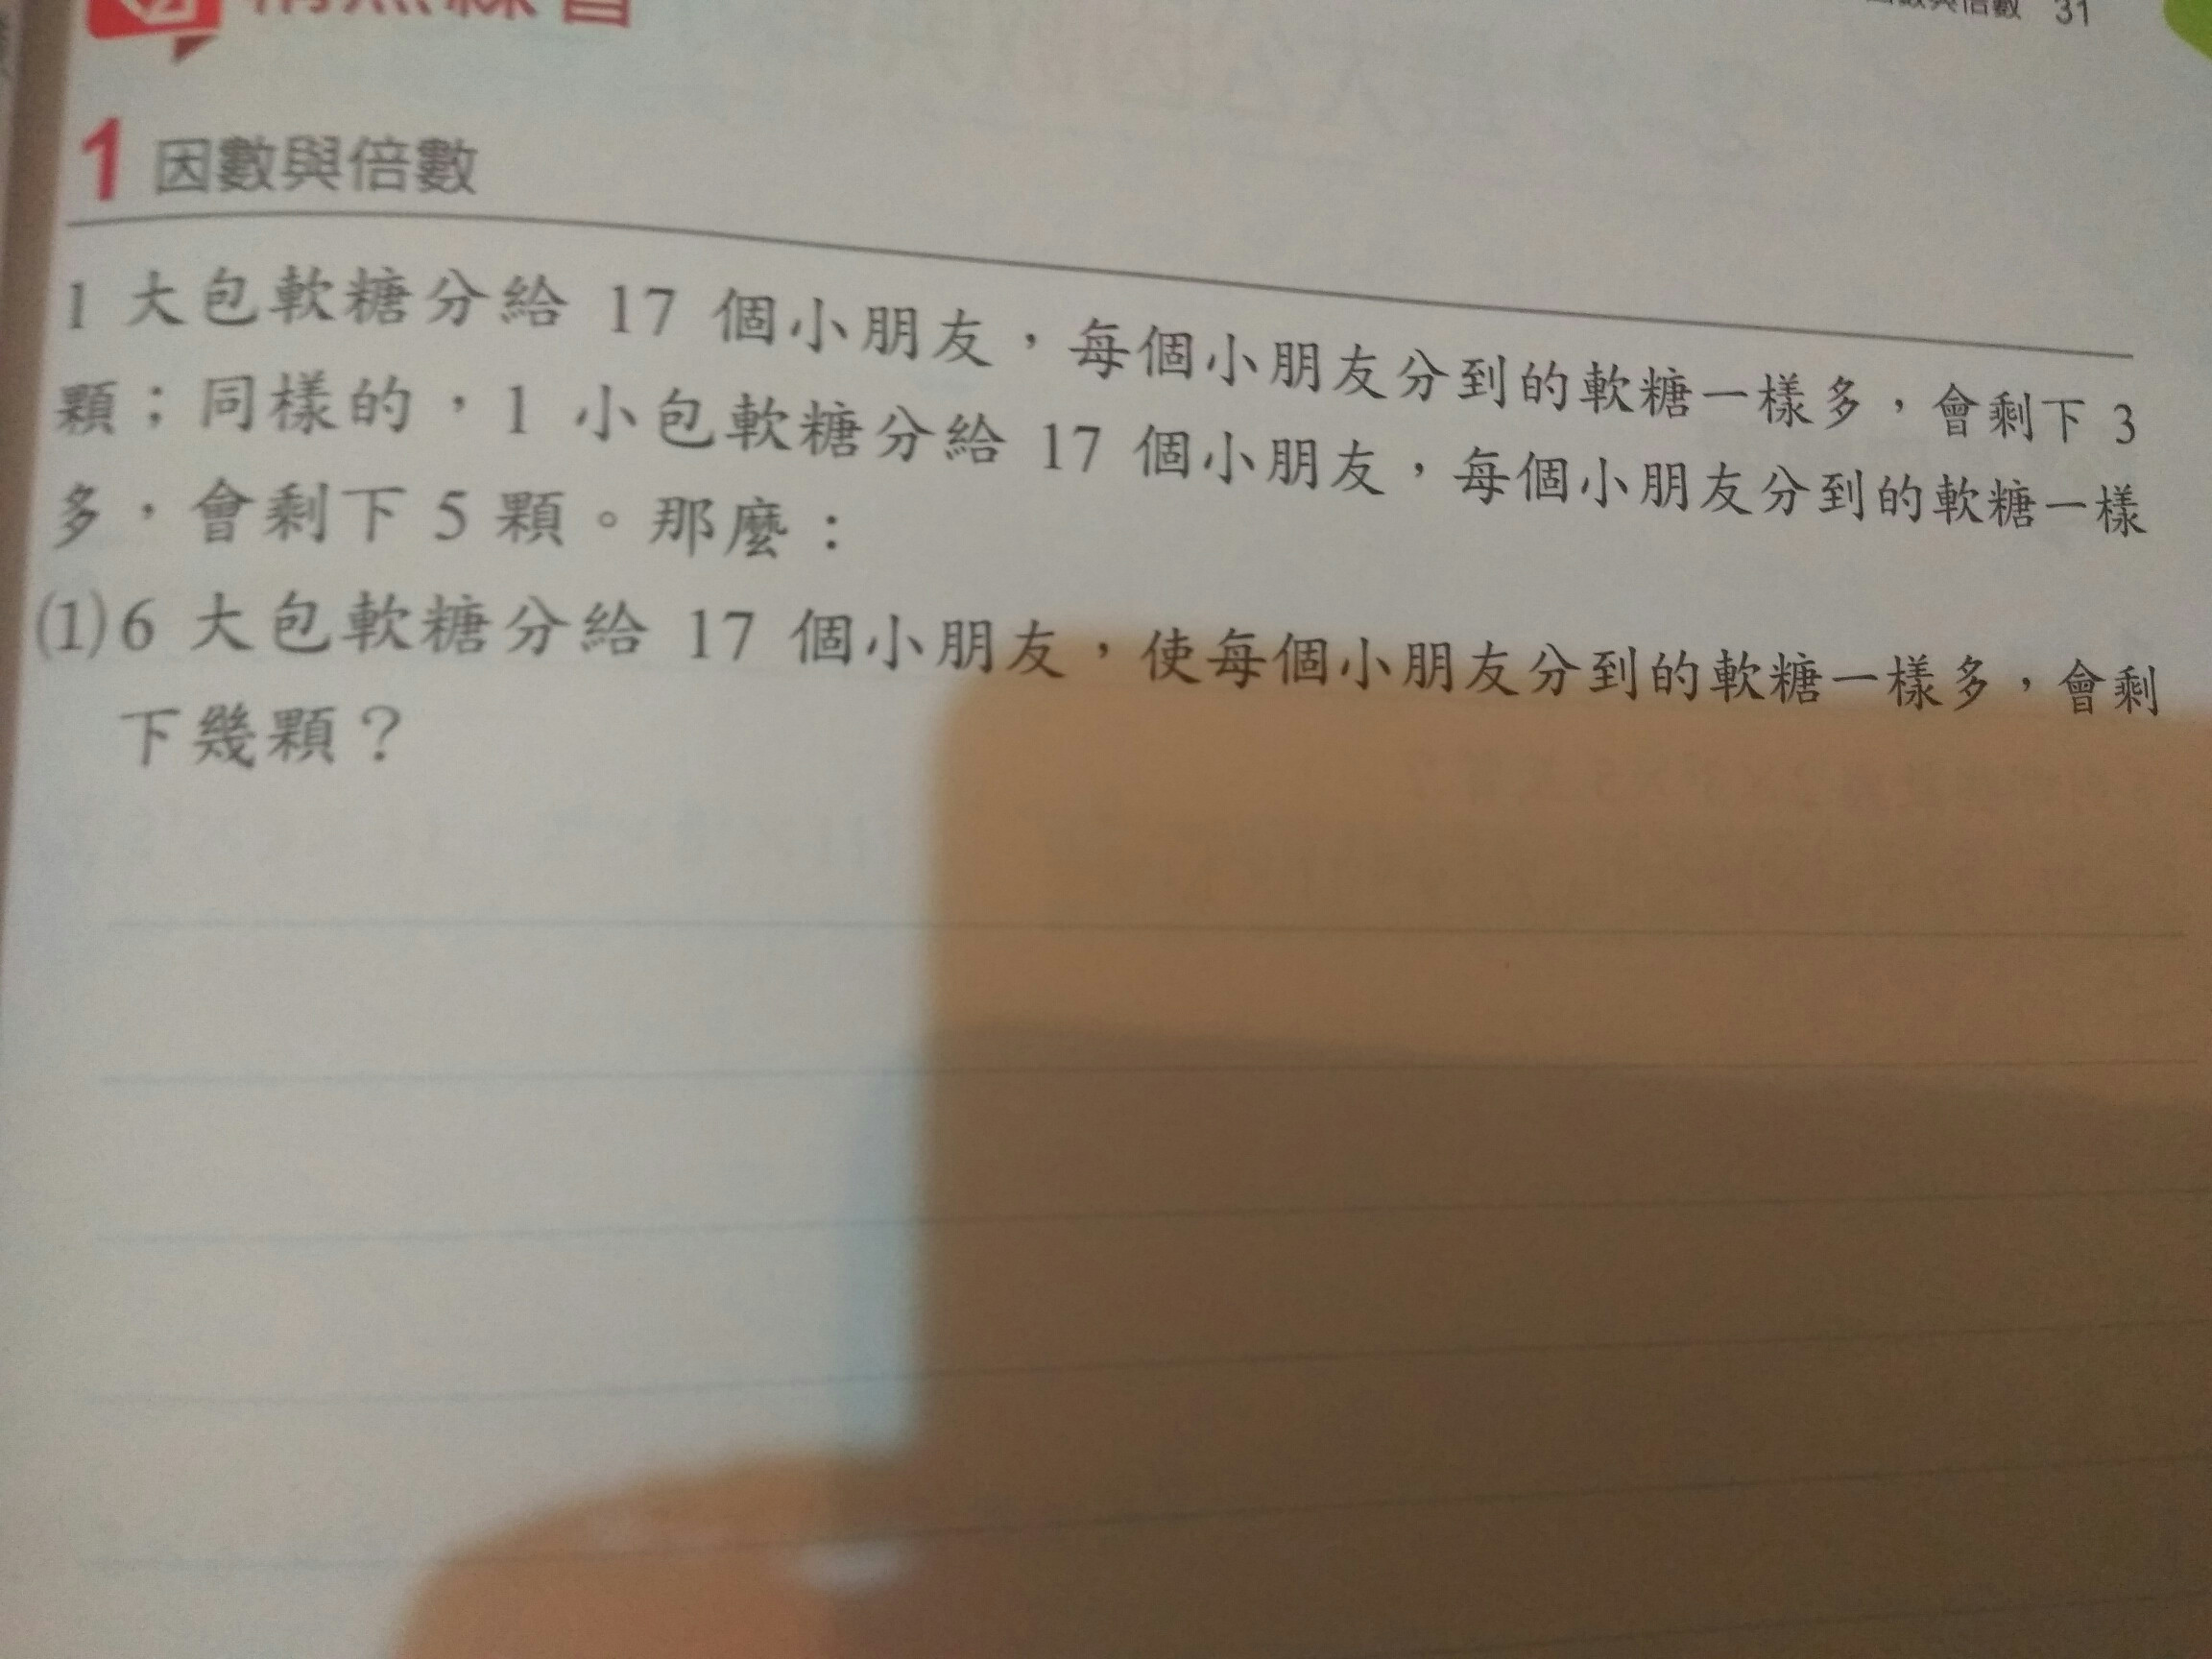 因數與倍數 31
練習
1 因數與倍數
1 大包軟糖分給 17 個小朋友，每個小朋友分到的軟糖一樣多，會剩下 3
顆；同樣的，1 小包軟糖分給 17 個小朋友，每個小朋友分到的軟糖一樣
多，會剩下 5 顆。那麼：
(1)6 大包軟糖分給 17 個小朋友，使每個小朋友分到的軟糖一樣多，會剩
下幾顆？